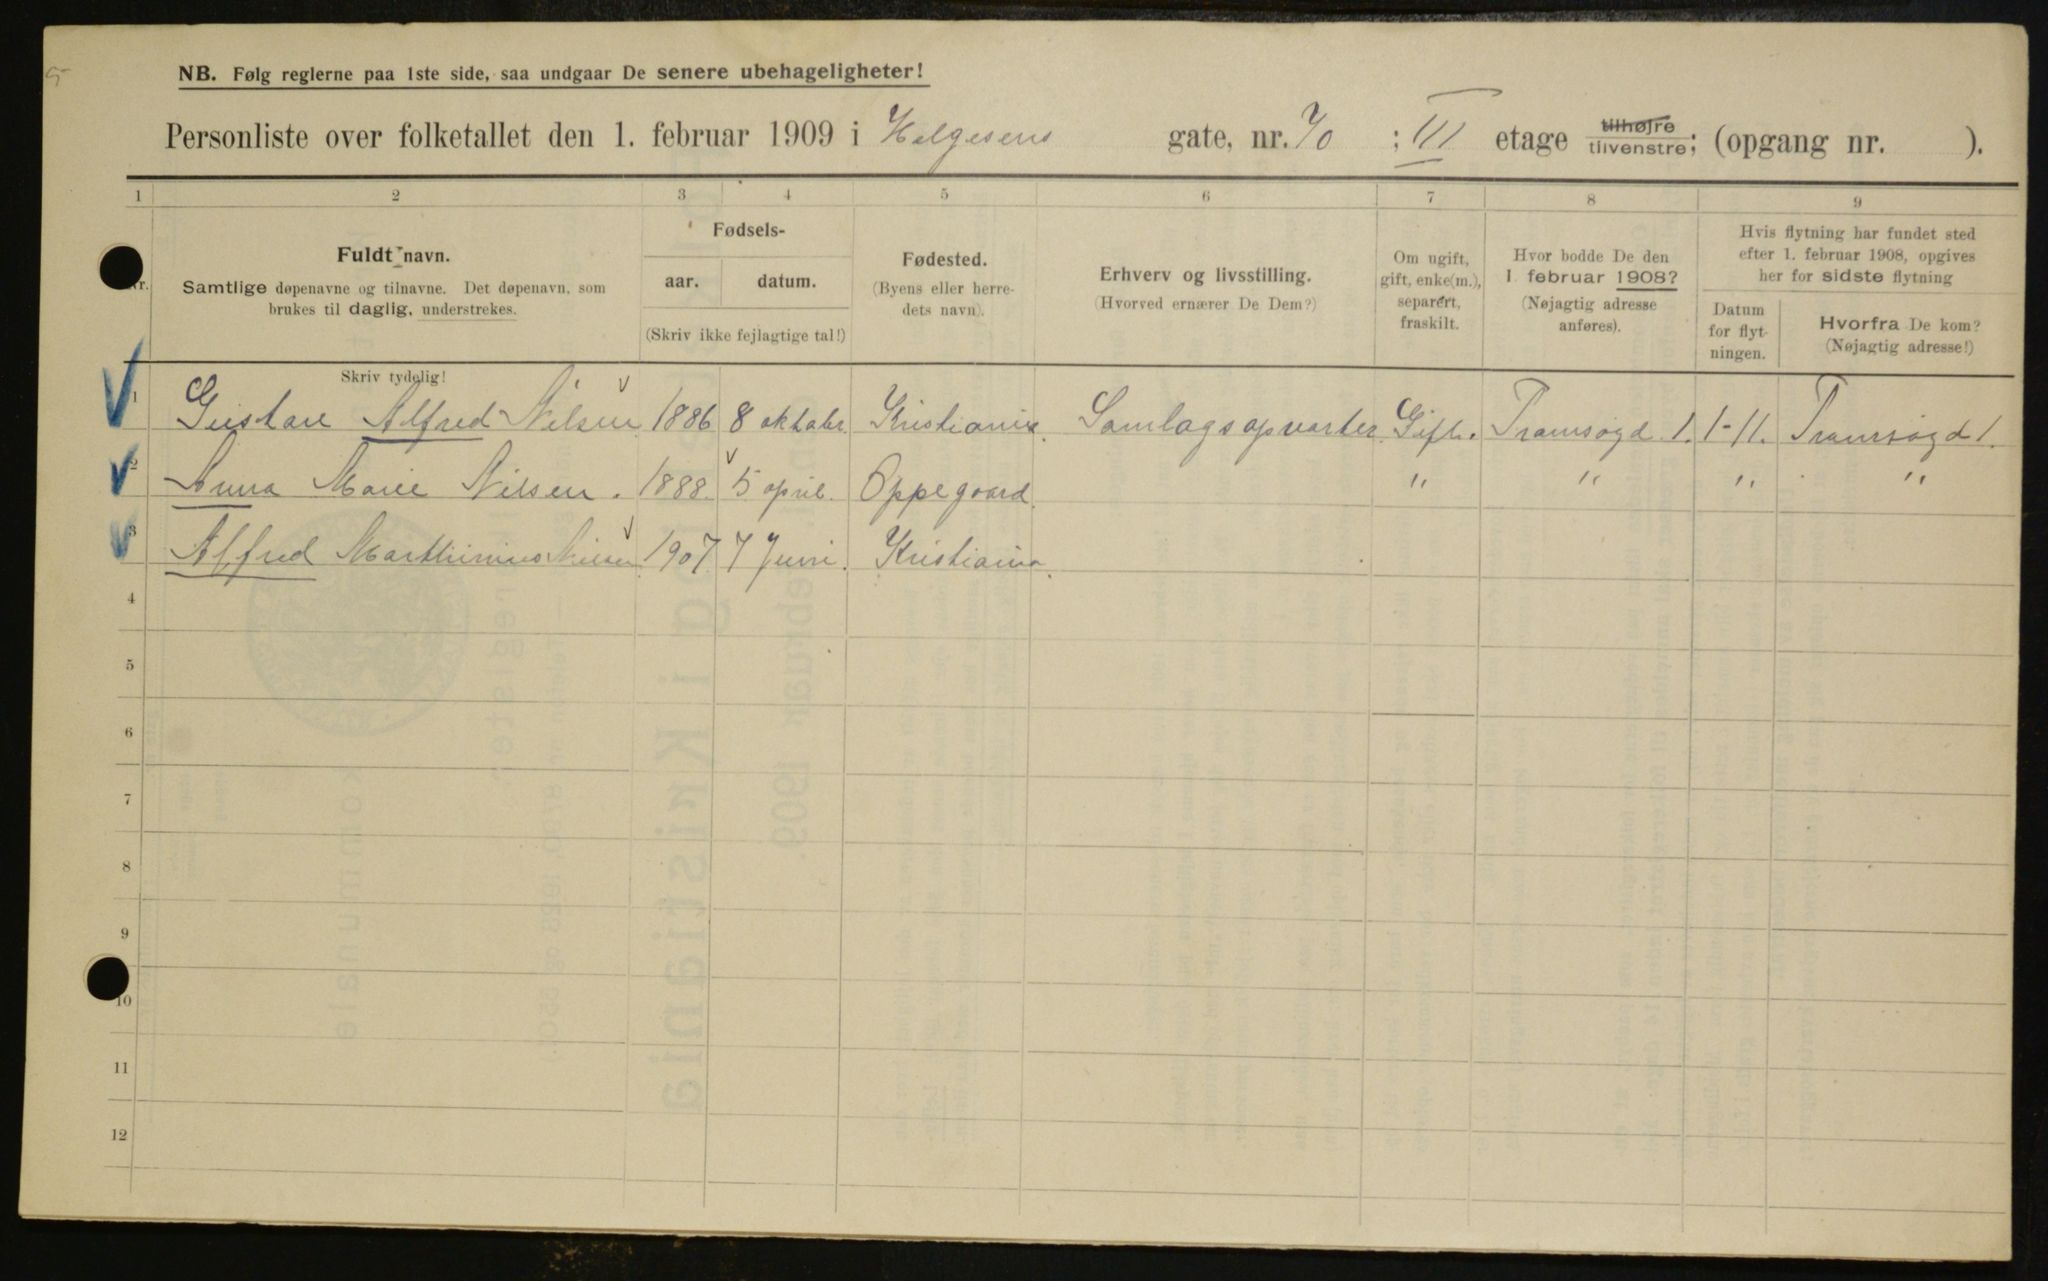 NB. Følg reglerne paa 1ste side, saa undgaar De senere ubehageligheter!
Personliste over folketallet den 1. februar 1909 i Helgesens gate, nr. 70 ; III etage tilhøjre tilvenstre; (opgang nr. ).
1 2 3 4 5 6 7 8 9
Nr.
Fuldt navn.
Samtlige døpenavne og tilnavne. Det døpenavn, som
brukes til daglig, understrekes.
Skriv tydelig!
Fødsels-
aar. datum.
(Skriv ikke fejlagtige tal!)
Fødested.
(Byens eller herre-
dets navn).
Erhverv og livsstilling.
(Hvorved ernærer De Dem?)
Om ugift,
gift, enke(m.),
separert,
fraskilt.
Hvor bodde De den
1. februar 1908?
(Nøjagtig adresse
anføres).
Hvis flytning har fundet sted
efter 1. februar 1908, opgives
her for sidste flytning
Datum
for flyt-
ningen.
Hvorfra De kom?
(Nøjagtig adresse!)
1 Gustav Alfred Nilsen 1886 8 oktobr. Kristiania. Samlagsopvarter Gift. Tramsøgd 1. 1-11. Tramsøgd 1.
2 Anna Marie Nilsen. 1888. 5 april. Oppegaard. " " " "
3 Alfred Marthinius Nilsen 1907. 7 Juni. Kristiania.
4
5
6
7
8
9
10
11
12